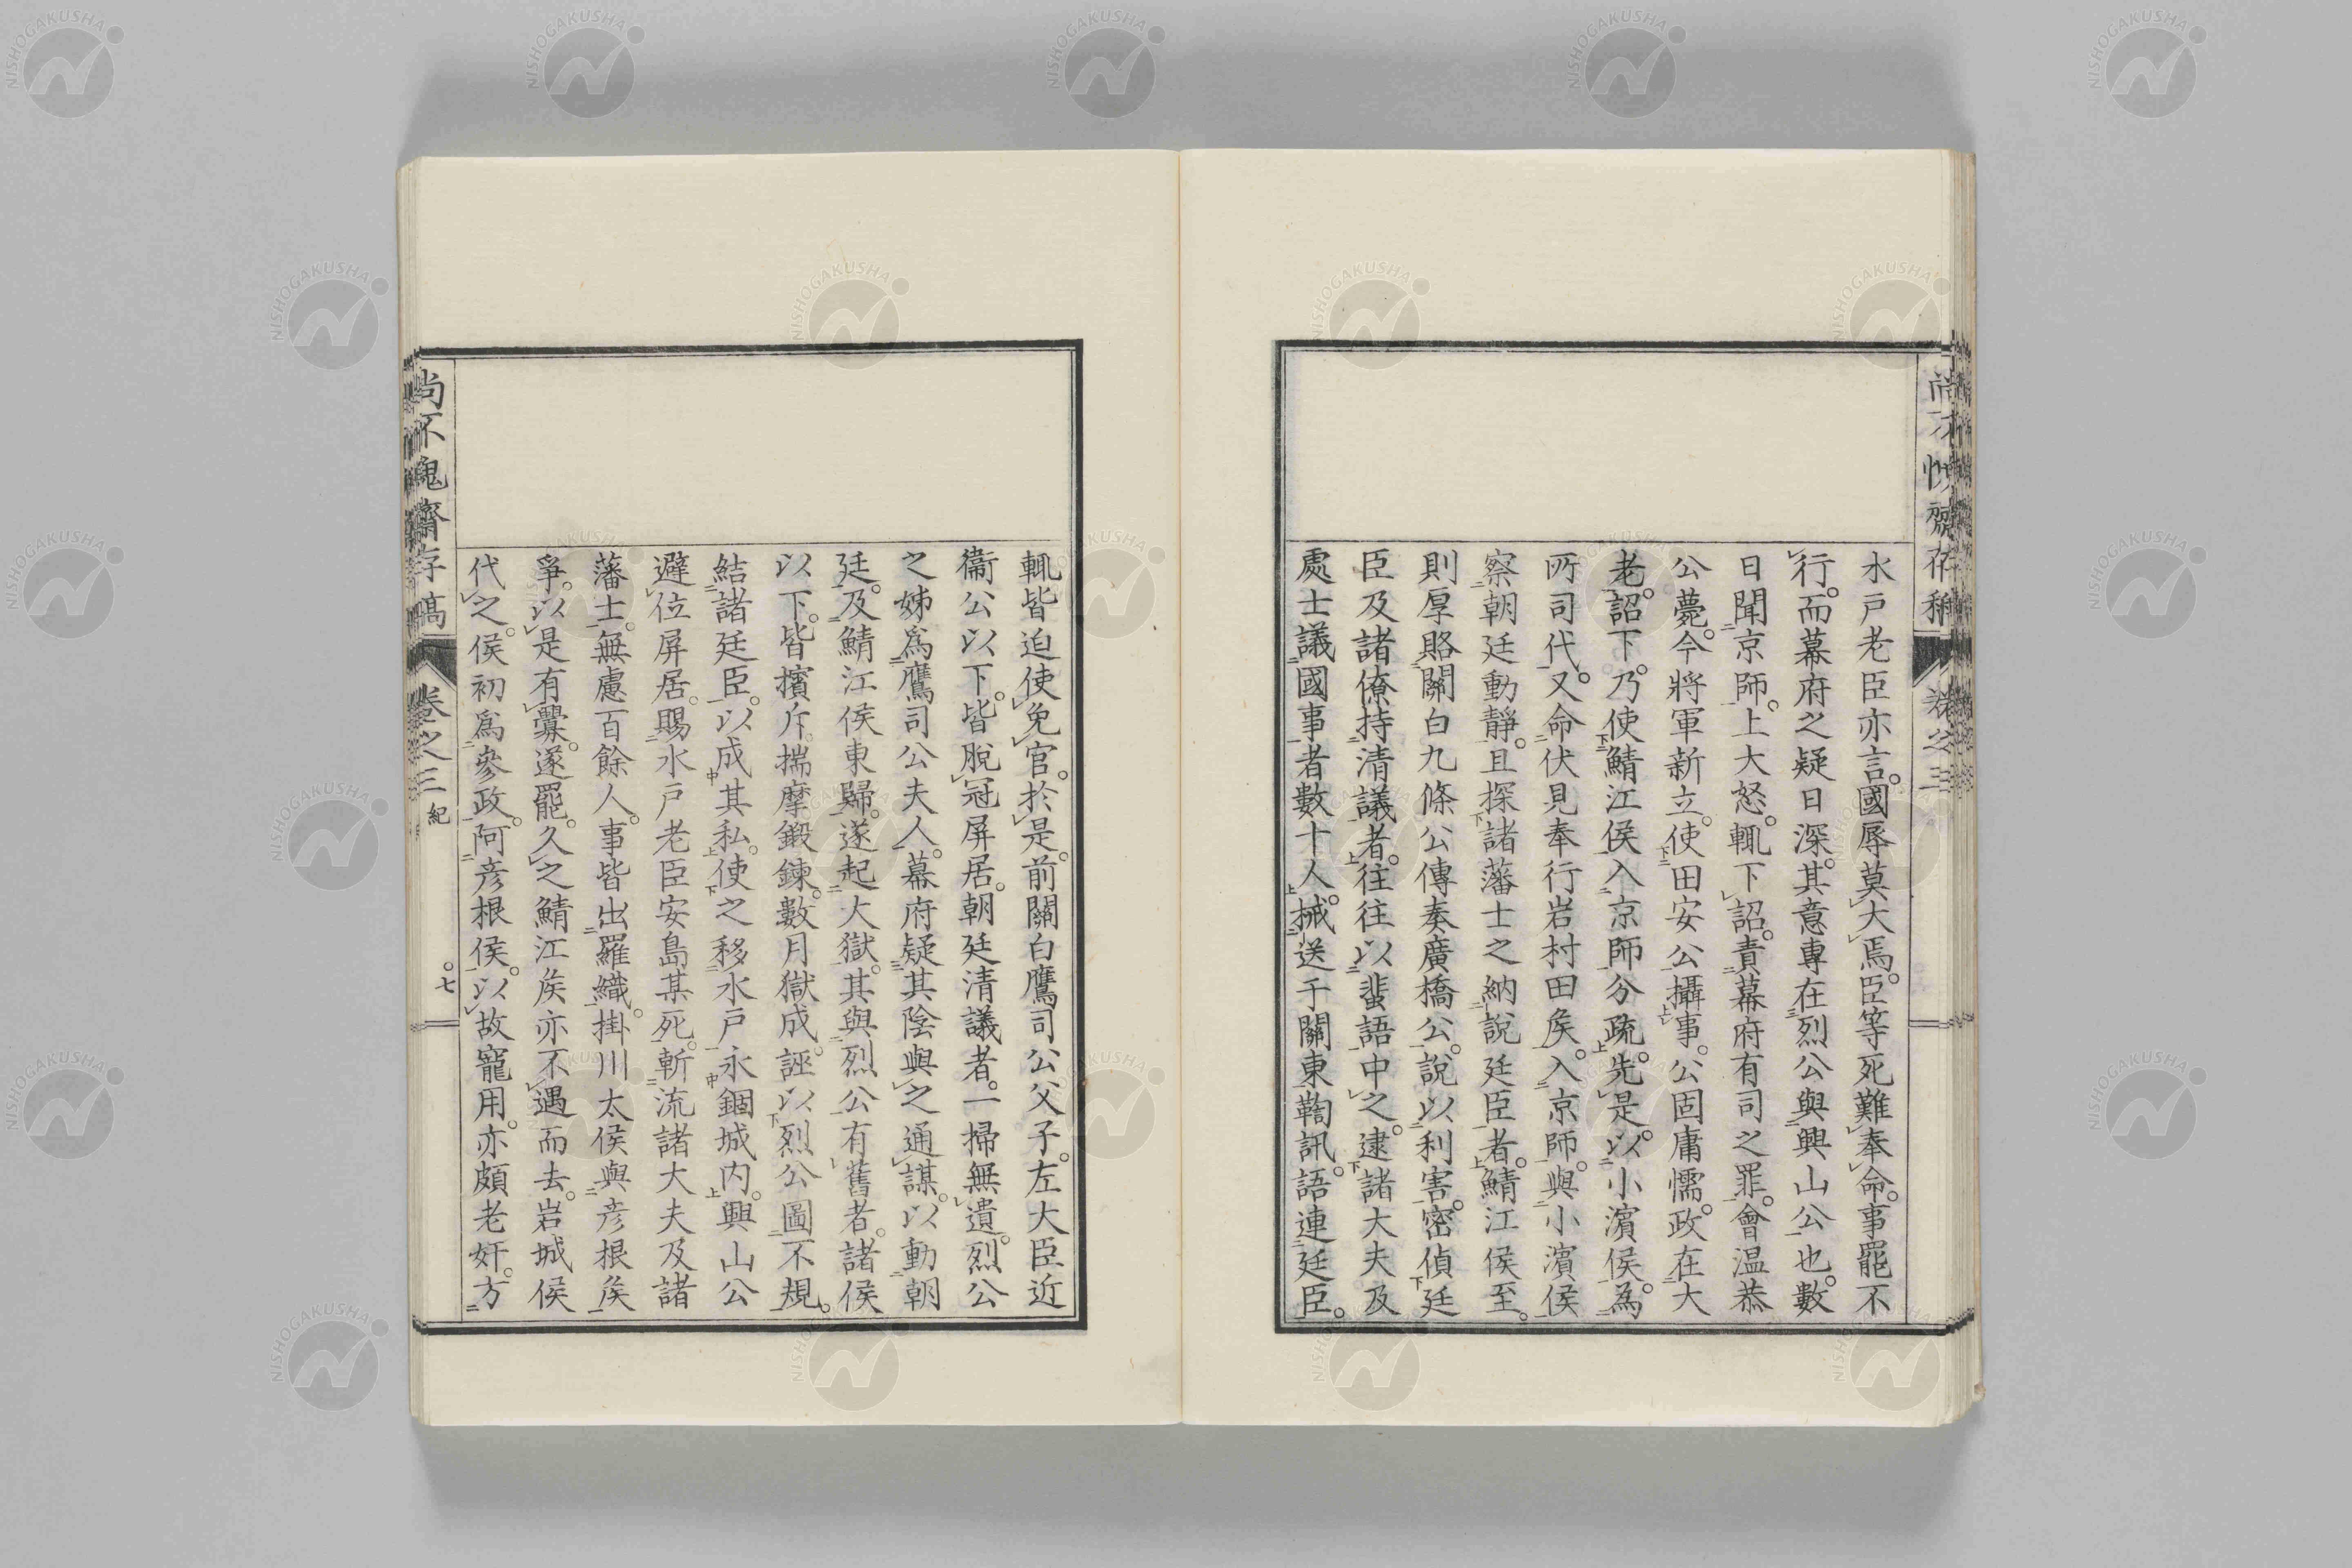 水戸老臣亦言。國辱莫大焉。臣等死難奉命。事罷不
行。而幕府之疑日深。其意專在烈公與興山公也。數
日聞京師。上大怒。輒下詔。責幕府有司之罪。會温恭
公薨。今將軍新立。使田安公攝事。公固庸懦。政在大
老。詔下。乃使鯖江侯入京師分疏。先是。以小濱侯為
所司代。又命伏見奉行岩村田侯。入京師。與小濱侯
察朝廷動靜。且探諸藩士之納說廷臣者。鯖江侯至。
則厚賂關白九條公傳奏廣橋公。說以利害。密偵廷
臣及諸僚持清議者。往往以蜚語中之。逮諸大夫及
處士議國事者數十人。械送于關東鞫訊。語連廷臣。
輒皆迫使免官。於是。前關白鷹司公父子。左大臣近
衞公以下。皆脫冠屏居。朝廷清議者。一掃無遺。烈公
之姊為鷹司公夫人。幕府疑其陰與之通謀。以動朝
廷。及鯖江侯東歸。遂起大獄。其與烈公有舊者。諸侯
以下。皆擯斥。揣摩鍛鍊。數月獄成。誣以烈公圖不規。
結諸廷臣。以成其私。使之移水戸永錮城内。興山公
避位屏居。賜水戸老臣安島某死。斬流諸大夫及諸
藩士。無慮百餘人。事皆出羅織。掛川太侯與彦根侯
爭。以是有釁。遂罷。久之鯖江侯亦不遇而去。岩城侯
代之。侯初爲參政。阿彦根侯。以故寵用。亦頗老奸。方
尚不愧齋存稿 卷之三 紀 七